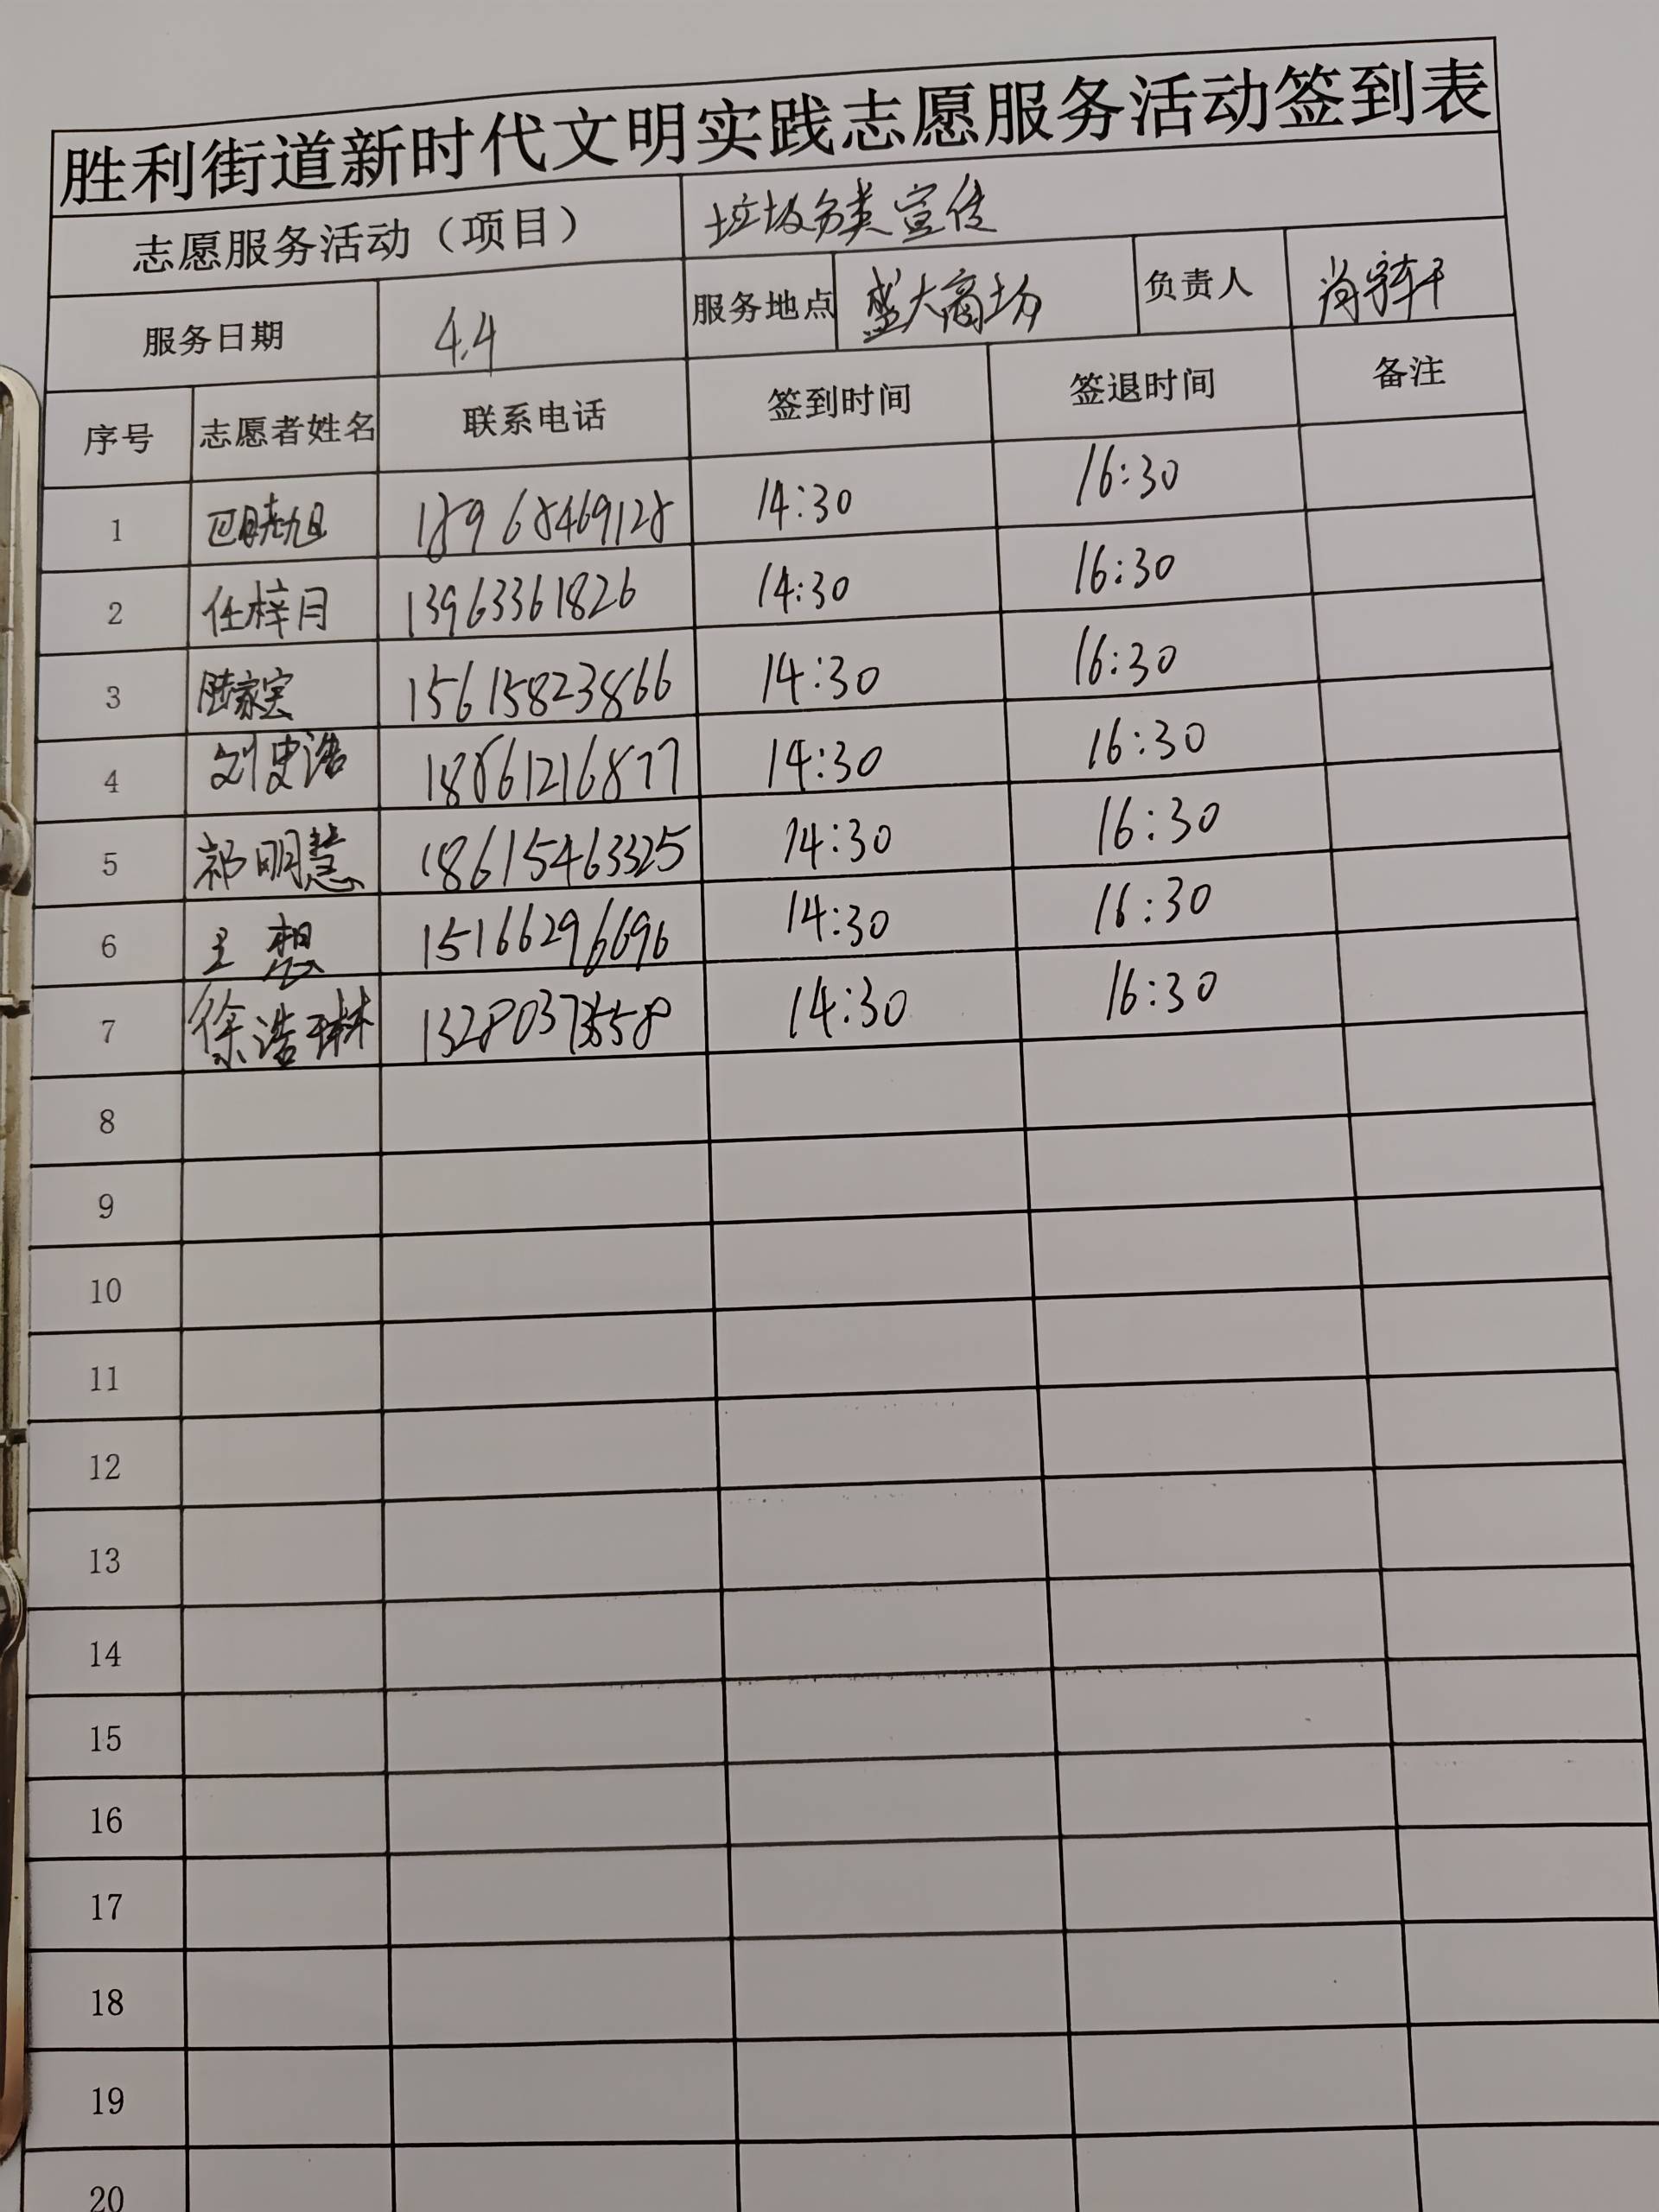 胜利街道新时代文明实践志愿服务活动签到表
志愿服务活动（项目） 垃圾分类宣传
服务日期 4.4 服务地点 盛大商场 负责人 肖宇轩
序号 志愿者姓名 联系电话 签到时间 签退时间 备注
1 18968469128 14:30 16:30
2 任梓月 13963361826 14:30 16:30
3 陆家宾 15615823866 14:30 16:30
4 刘史浩 18861216877 14:30 16:30
5 祁明慧 18615463325 14:30 16:30
6 王想 15166296696 14:30 16:30
7 徐浩琳 14:30 16:30
8
9
10
11
12
13
14
15
16
17
18
19
20